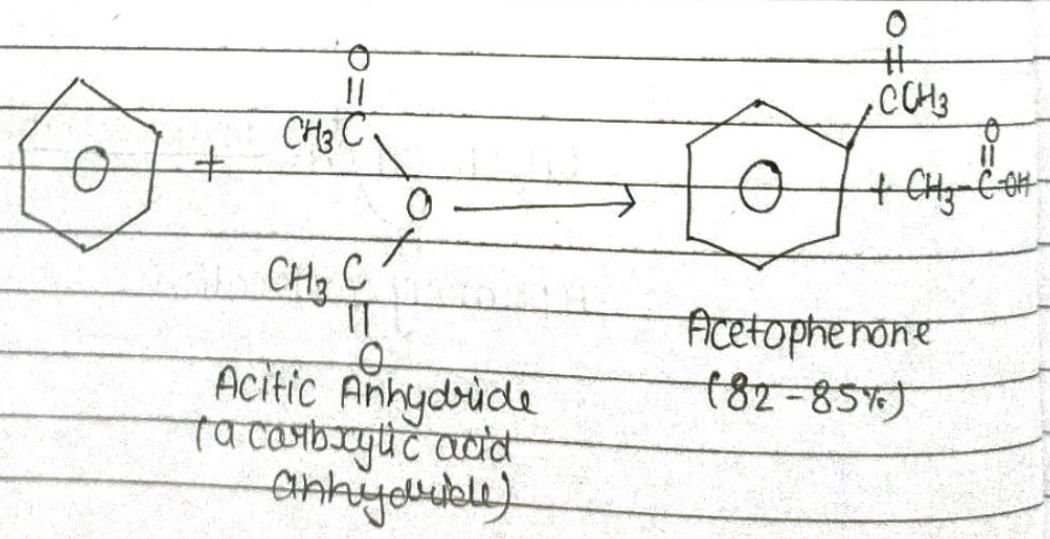 O
||
CH3C
+
O
CH3 C
||
O
O
||
CCH3
O
||
+ CH3-C-OH
Acitic Anhydride
(a carboxylic acid
anhydride)
Acetophenone
(82-85%)